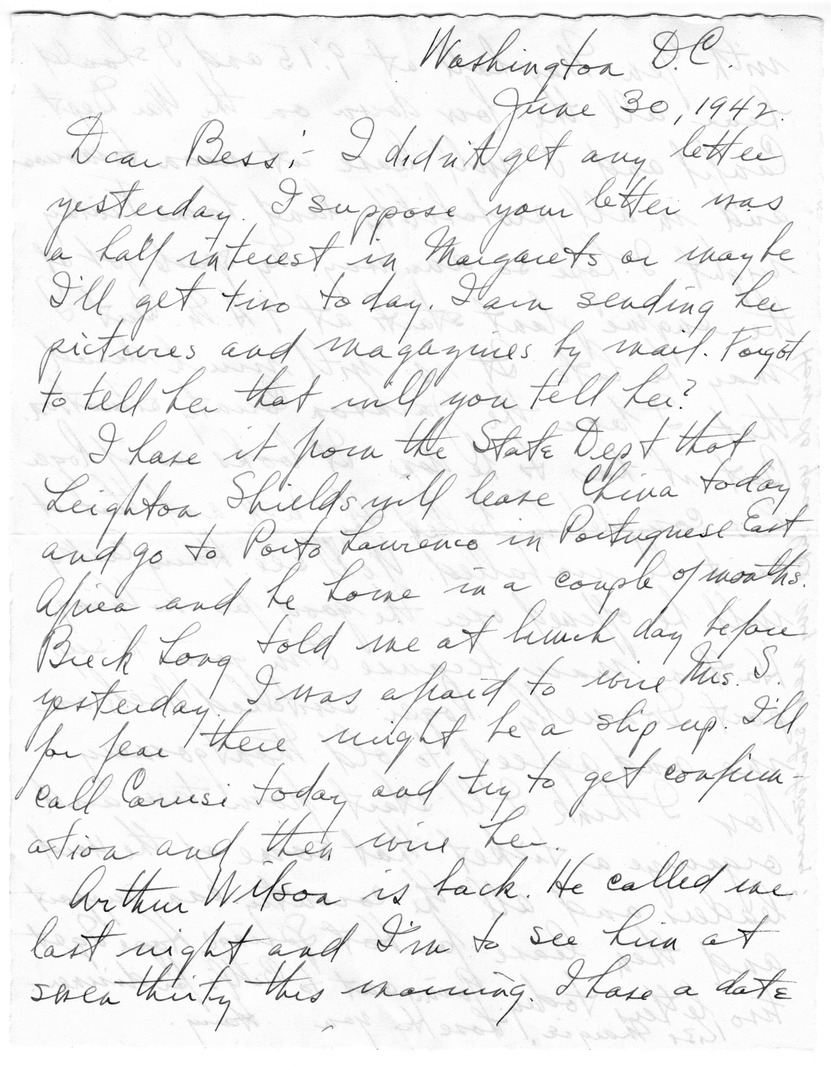 Washington D.C.
June 30, 1942.
Dear Bess:- I didn't get any letter
yesterday. I suppose your letter was
a half interest in Margarets or maybe
I'll get two today. I am sending her
pictures and magazines by mail. Forgot
to tell her that will you tell her?
I have it from the State Dept that
Leighton Shields will leave China today
and go to Porto Laurenco in Portuguese East
Africa and be home in a couple of months.
Breck Long told me at lunch day before
yesterday. I was afraid to wire Mrs. S.
for fear there might be a slip up. I'll
call Carusi today and try to get confirm-
ation and then wire her.
Arthur Wilson is back. He called me
last night and I'm to see him at
seven thirty this morning. I have a date